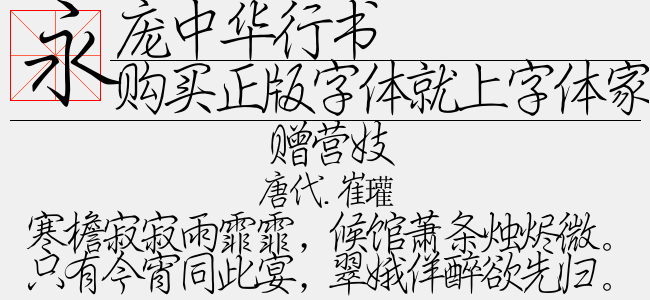 永
庞中华行书
购买正版字体就上字体家
赠营妓
唐代.崔瓘
寒檐寂寂雨霏霏，候馆萧条烛烬微。
只有今宵同此宴，翠娥佯醉欲先归。